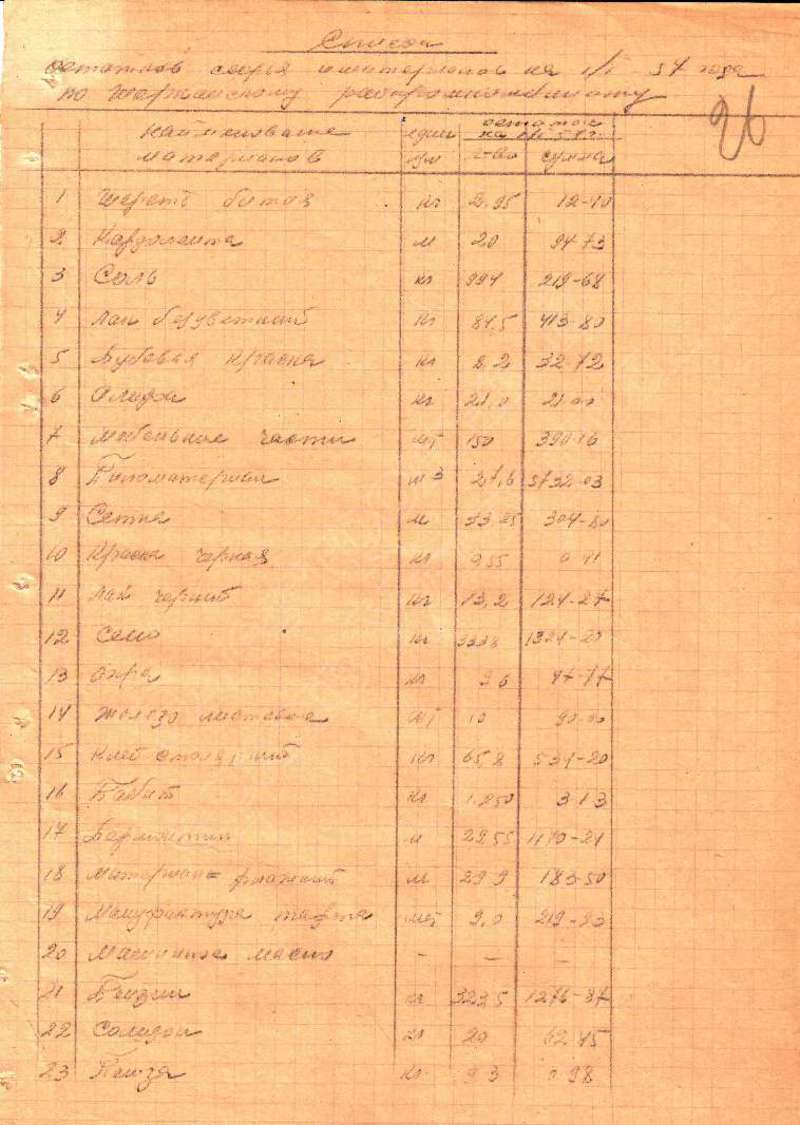 Список
остатков сырья и материалов на 1/I - 57 года
по райпромкомбинату
26
наименование материалов един. изм остаток на 1/I 57 г. к-во сумма
1 Шерсть битая кг 2,95 12-90
2 Кардолента м 20 94-73
3 Соль кг 994 219-68
4 Лак безцветный кг 84,5 413-80
5 Бубовая краска кг 8,2 32-72
6 Олифа кг 21,0 21-00
7 Мебельные части шт 150 390-16
8 Пиломатериал м3 27,6 5732-03
9 Сетка м 33,25 304-80
10 Краска черная кг 0,55 0-91
11 Лак черный кг 13,2 124-27
12 Сено кг 3338 1324-20
13 Охра кг 96 97-77
14 Железо листовое шт 10 90-00
15 Клей столярный кг 65,8 534-20
16 Баббит кг 1,250 3-13
17 м 22,55 1170-21
18 Материал м 29,9 183-50
19 Мануфактура шт 9,0 219-23
20 Машинное масло - - -
21 Бензин кг 323,5 1276-87
22 Солидол кг 20 62-45
23 Пемза кг 9,3 0-98